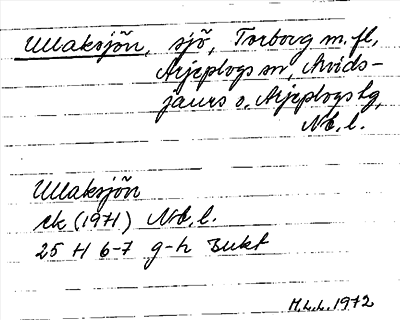 Ullaksjön, sjö, Torborg m.fl,
Arjeplogs sn, Arvids-
jaurs o. Arjeplogs tg,
Nb. l.
Ullaksjön
ek (1971) Nb. l.
25 H 6-7 g-h Bukt
M.L.L. 1972